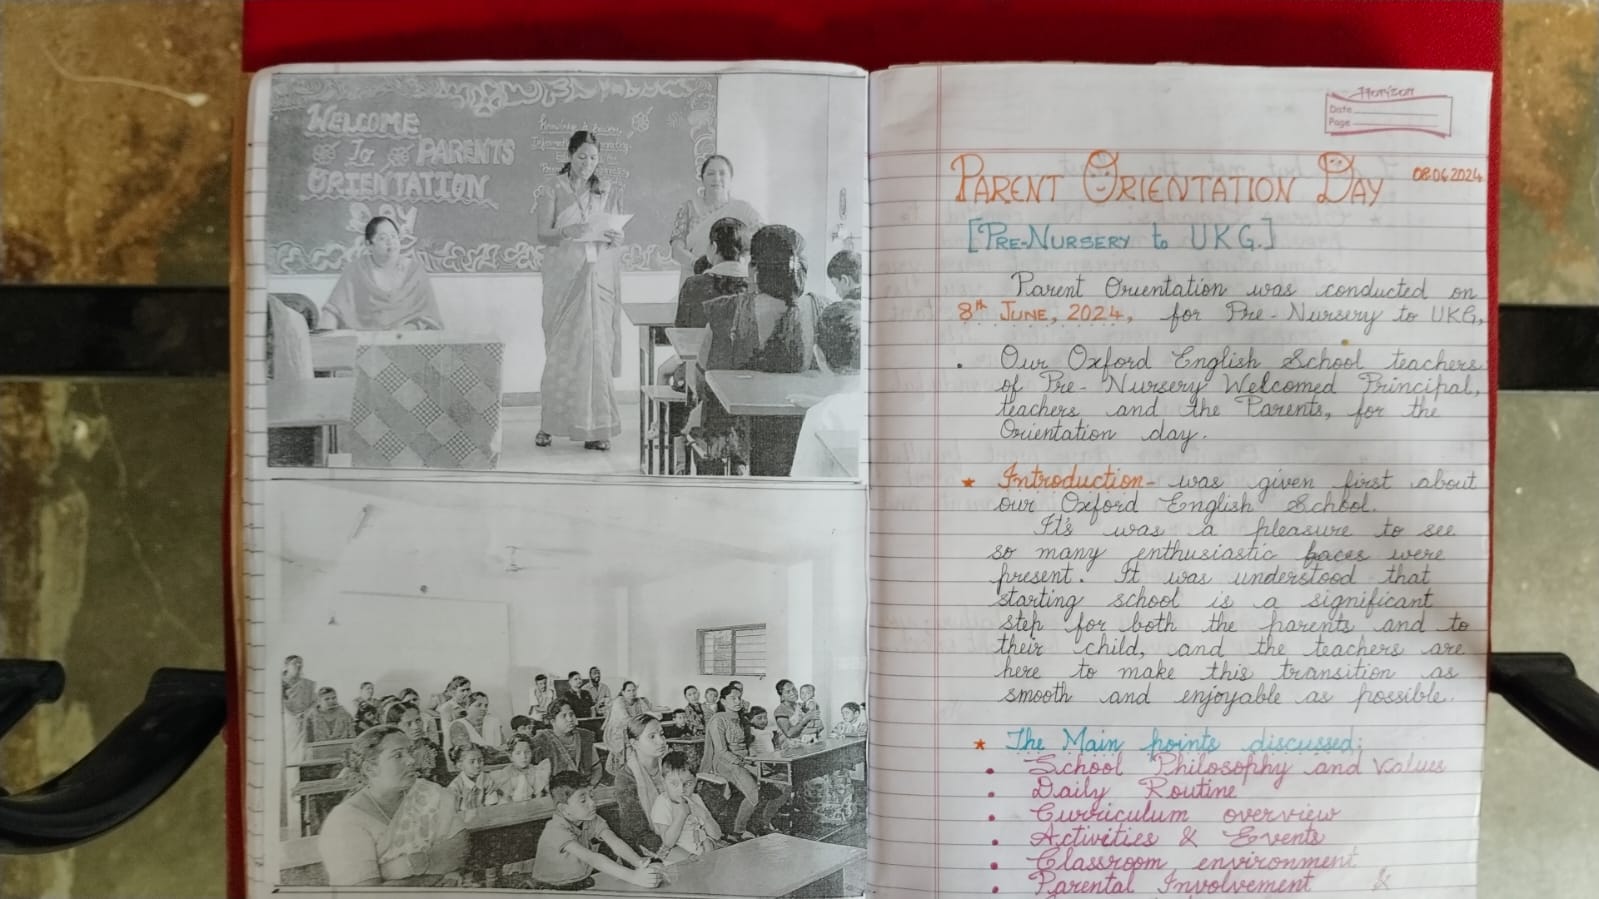 WELCOME
To PARENTS
ORIENTATION
DAY
Horizon
Date
Page
PARENT ORIENTATION DAY
08.06.2024
[PRE-NURSERY to UKG.]
Parent Orientation was conducted on
8th JUNE, 2024, for Pre-Nursery to UKG,
. Our Oxford English School teachers
of Pre-Nursery Welcomed Principal,
teachers and the Parents, for the
Orientation day.
★ Introduction- was given first about
our Oxford English School.
It's was a pleasure to see
so many enthusiastic faces were
present. It was understood that
starting school is a significant
step for both the parents and to
their child, and the teachers are
here to make this transition as
smooth and enjoyable as possible.
★ The Main points discussed;
• School Philosophy and Values
• Daily Routine
• Curriculum overview
• Activities & Events
• Classroom environment
• Parental Involvement &